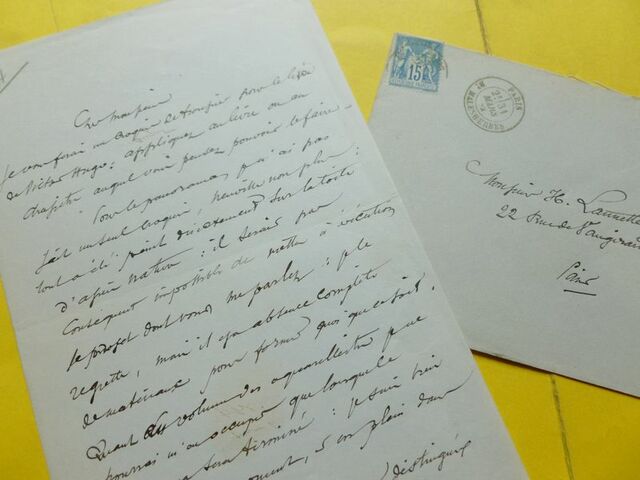 Cher Monsieur
Je vous ferai un croquis de trompier pour le livre
de Victor Hugo; appliquez au livre ou au
chapitre auquel vous pensez pouvoir le faire.
Pour le panorama, je n'ai pas
fait un seul croquis, Neuville non plus:
tout a été peint directement sur la toile
d'après nature: il serait par
conséquent impossible de mettre à exécution
le projet dont vous me parlez: je le
regrette, mais il y a absence complète
de matériaux pour former quoi que ce soit.
Quant au volume des aquarellistes je ne
pourrai m'en occuper que lorsque le
sera terminé: je suis
en plein dans
distingués
15
PARIS
MARS
Monsieur H. Launette
22 Rue de Vaugirard
Paris